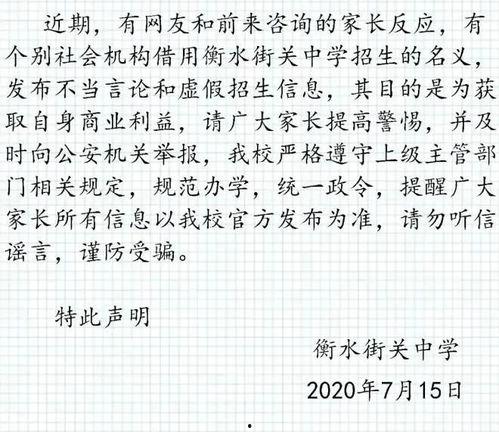 近期，有网友和前来咨询的家长反应，有
个别社会机构借用衡水街关中学招生的名义，
发布不当言论和虚假招生信息，其目的是为获
取自身商业利益，请广大家长提高警惕，并及
时向公安机关举报，我校严格遵守上级主管部
门相关规定，规范办学，统一政令，提醒广大
家长所有信息以我校官方发布为准，请勿听信
谣言，谨防受骗。
特此声明
衡水街关中学
2020年7月15日